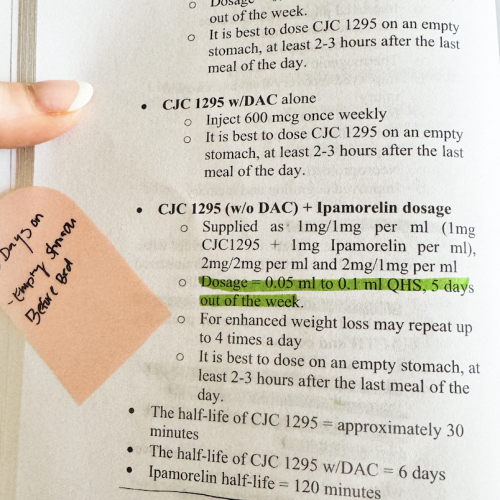 ○ Dosage
out of the week.
○ It is best to dose CJC 1295 on an empty
stomach, at least 2-3 hours after the last
meal of the day.
• CJC 1295 w/DAC alone
○ Inject 600 mcg once weekly
○ It is best to dose CJC 1295 on an empty
stomach, at least 2-3 hours after the last
meal of the day.
• CJC 1295 (w/o DAC) + Ipamorelin dosage
○ Supplied as 1mg/1mg per ml (1mg
CJC1295 + 1mg Ipamorelin per ml),
2mg/2mg per ml and 2mg/1mg per ml
○ Dosage = 0.05 ml to 0.1 ml QHS, 5 days
out of the week.
○ For enhanced weight loss may repeat up
to 4 times a day
○ It is best to dose on an empty stomach, at
least 2-3 hours after the last meal of the
day.
• The half-life of CJC 1295 = approximately 30
minutes
• The half-life of CJC 1295 w/DAC = 6 days
• Ipamorelin half-life = 120 minutes
Days on
- Empty Stomach
Before Bed